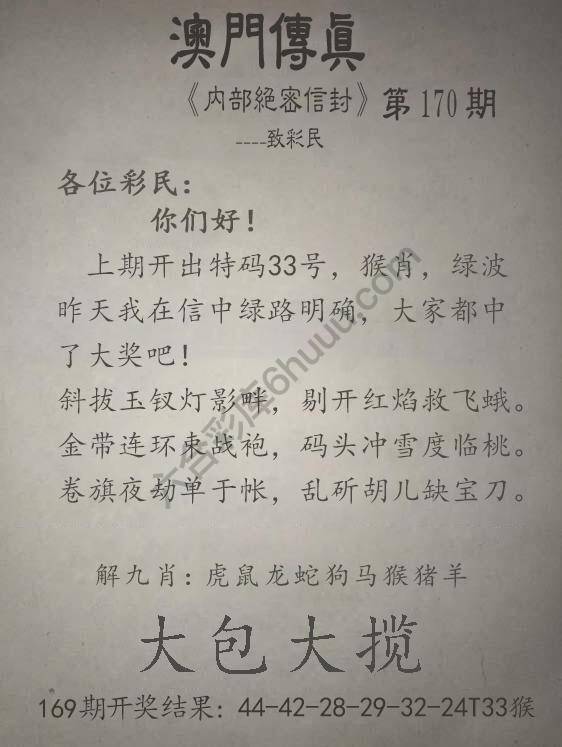 澳門傳眞
《内部絕密信封》第170期
----致彩民
各位彩民：
你们好！
上期开出特码33号，猴肖，绿波
昨天我在信中绿路明确，大家都中
了大奖吧！
斜拔玉钗灯影畔，剔开红焰救飞蛾。
金带连环束战袍，码头冲雪度临桃。
卷旗夜劫单于帐，乱斫胡儿缺宝刀。
解九肖：虎鼠龙蛇狗马猴猪羊
大包大揽
169期开奖结果：44-42-28-29-32-24T33猴
六合彩库6huuu.com